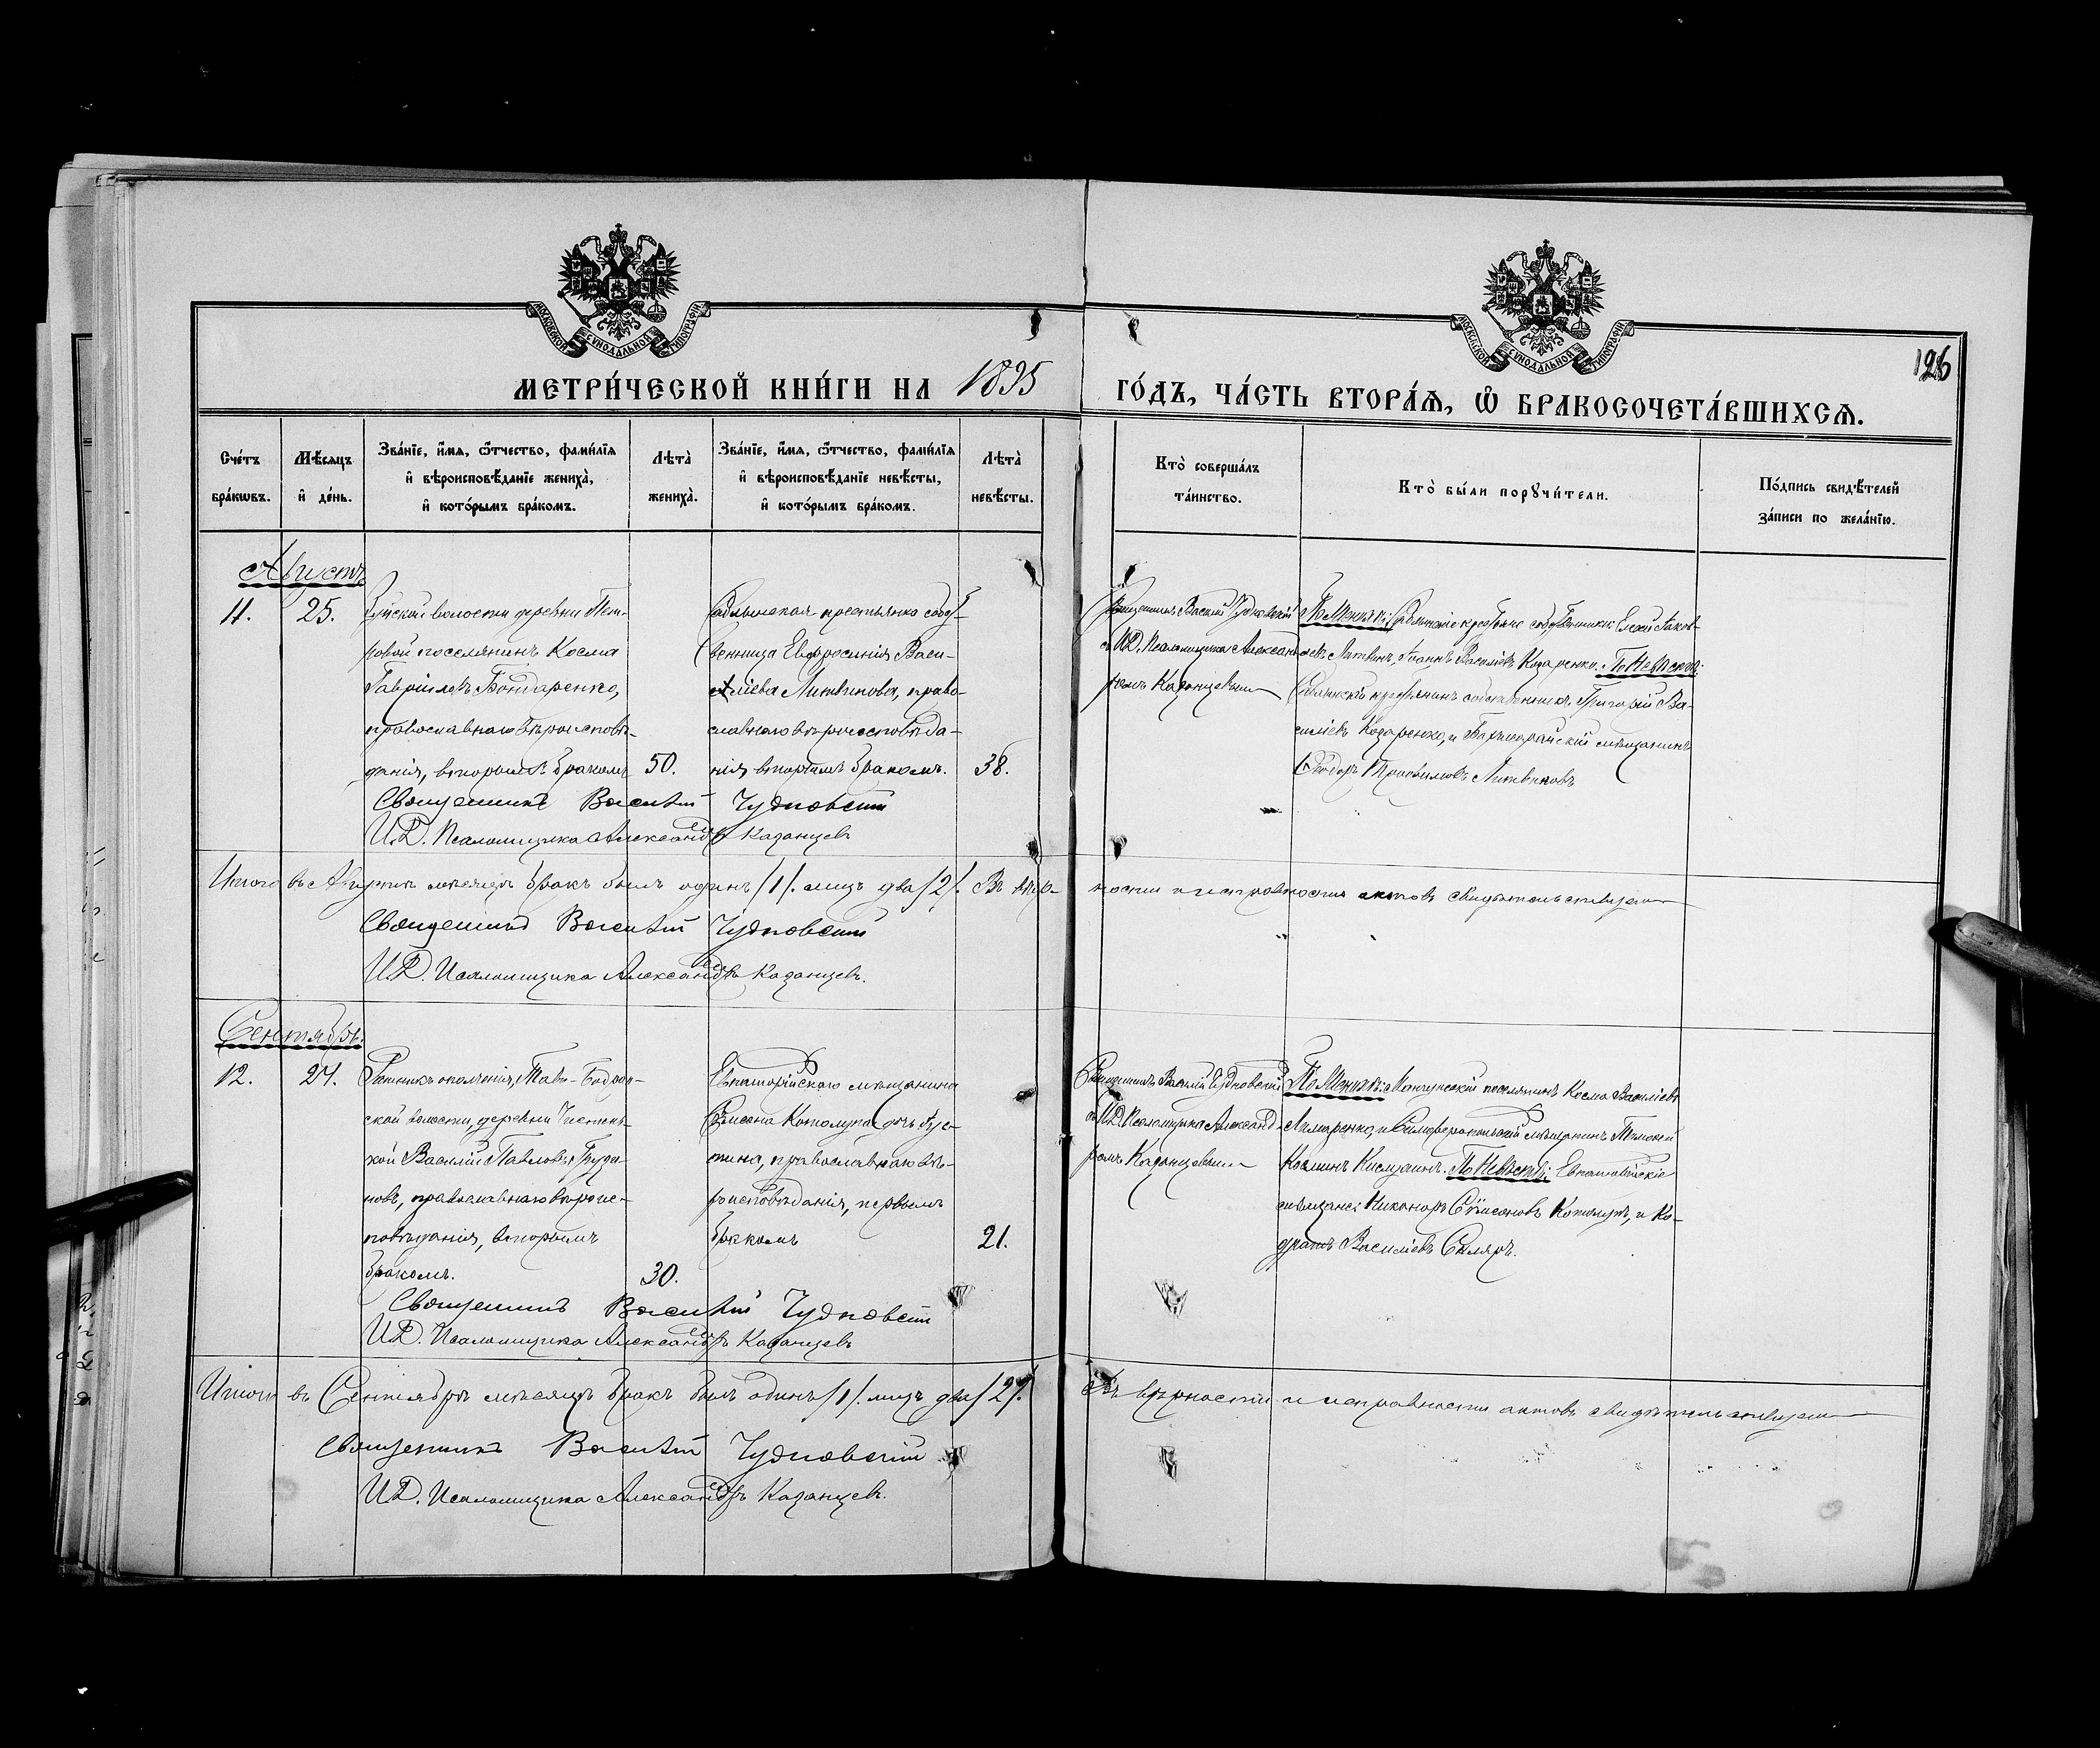 МЕТРИ́ЧЕСКОЙ КНИ́ГИ НА 1895 ГО́ДЪ, ЧА́СТЬ ВТОРА́Я, Ѡ БРАКОСОЧЕТА́ВШИХСѦ.
126
МОСКОВСКОЙ СУНОДАЛЬНОЙ ТИПОГРАФІИ
МОСКОВСКОЙ СУНОДАЛЬНОЙ ТИПОГРАФІИ
Сче́тъ
бра́кѡвъ.
Мѣ́сяцъ
и҆ де́нь.
Зва́нїе, и҆́мя, ѻ҆́тчество, фами́лїя
и҆ вѣроисповѣ́данїе жениха̀,
и҆ кото́рымъ бра́комъ.
Лѣта̀
жениха̀.
Зва́нїе, и҆́мя, ѻ҆́тчество, фами́лїя
и҆ вѣроисповѣ́данїе невѣ́сты,
и҆ кото́рымъ бра́комъ.
Лѣта̀
невѣ́сты.
Кто̀ соверша́лъ
та́инство.
Кто̀ бы́ли порꙋчи́тели.
По́дпись свидѣ́телей
за́писи по жела́нїю.
Августъ
11. 25.
волости деревни Пет-
ровой поселянинъ Косма
Гавріиловъ Бондаренко,
православнаго вѣроисповѣ-
данія, вторымъ бракомъ 50.
крестьянка собст-
венница Евфросинія Васи-
ліева Литвинова, право-
славнаго вѣроисповѣда-
нія, вторымъ бракомъ. 38.
Священникъ Василій Чудновскій
с И.Д. Псаломщика Александ-
ромъ Казанцевымъ
По Женихѣ: крестьяне собственники
Литвинъ, Іоаннъ Василіевъ Козаренко. По Невѣстѣ:
крестьянинъ собственникъ Григорій Ва-
силіевъ Козаренко, и мѣщанинъ
Ѳеодоръ Литвиновъ
Священникъ Василій Чудновскій
И.Д. Псаломщика Александръ Казанцевъ
Итого въ Августѣ мѣсяцѣ бракъ былъ одинъ /1/. лицъ два /2/. Въ вѣр-
ности и исправности актовъ свидѣтельствуемъ
Священникъ Василій Чудновскій
И.Д. Псаломщика Александръ Казанцевъ.
Сентябрь.
12. 24.
Ратникъ ополченія,
ской волости, деревни Чистень-
кой Василій Павловъ
новъ, православнаго вѣроис-
повѣданія, вторымъ
бракомъ. 30.
Евпаторійскаго мѣщанина
дочь Іус-
тина, православнаго вѣ-
роисповѣданія, первымъ
бракомъ 21.
Священникъ Василій Чудновскій
с И.Д. Псаломщика Александ-
ромъ Казанцевымъ
По Женихѣ: поселянинъ Косма Василіевъ
и Симферопольскій мѣщанинъ Тимоѳей
По Невѣстѣ: Евпаторійскіе
мѣщане: Никаноръ и Ко-
дратъ Василіевъ Скляръ.
Священникъ Василій Чудновскій
И.Д. Псаломщика Александръ Казанцевъ
Итого въ Сентябрѣ мѣсяцѣ бракъ былъ одинъ /1/. лицъ два /2/. Въ вѣрности и исправности актовъ свидѣтельствуемъ
Священникъ Василій Чудновскій
И.Д. Псаломщика Александръ Казанцевъ.